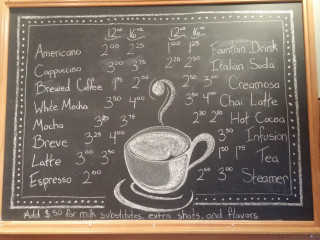 12oz 16oz 12oz 16oz
Americano 2.00 2.25 1.00 1.25 Fountain Drink
Cappuccino 3.00 3.75 2.25 2.50 Italian Soda
Brewed Coffee 1.75 2.00 3.00 Creamosa
White Mocha 3.50 4.00 3.50 4.00 Chai Latte
Mocha 3.75 Hot Cocoa
Breve 3.25 4.00 3.50 Infusion
Latte 3.00 3.50 Tea
Espresso 2.00 3.00 Steamer
Add $.50 for milk substitutes, extra shots, and flavors